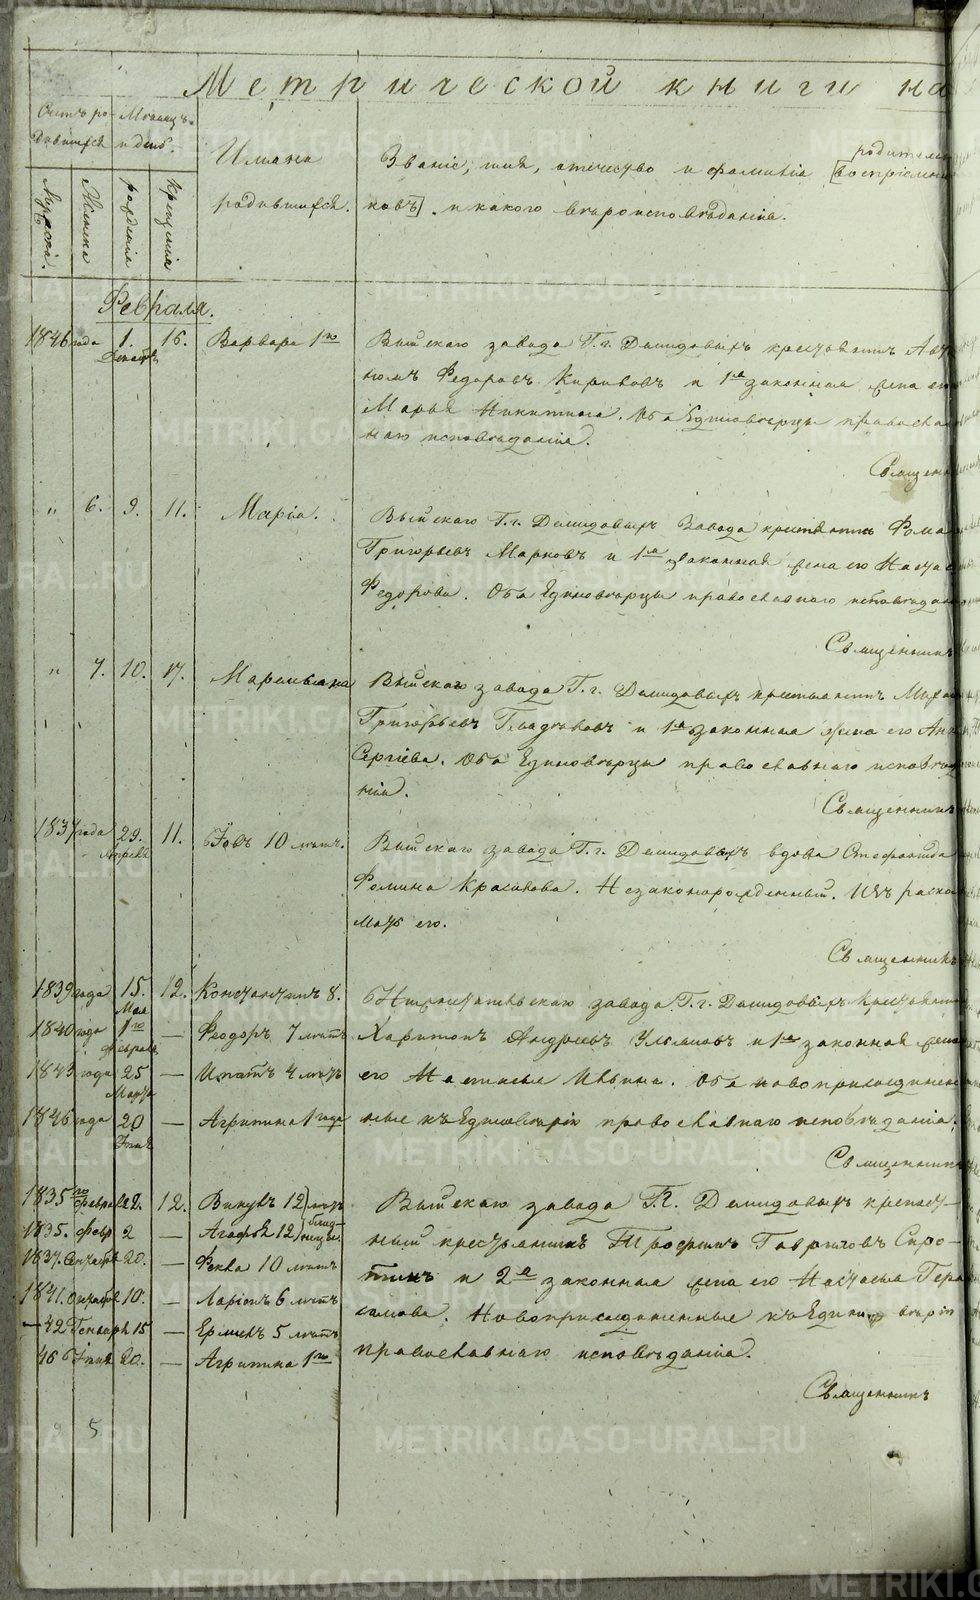 METRIKI.GASO-URAL.RU
Метрической книги на
Счетъ ро-
дившихся
Мѣсяцъ
и день.
Имяна
родившихся.
Званіе, имя, отечество и фамилія родителей
[воспріемни
ковъ] и какого вѣроисповѣданія.
Мужска.
Женска
рожденія
крещенія
Февраля.
1846 года 1. Декабр 16. Варвара 1го
Выйскаго завода Г.г. Демидовыхъ крестьянинъ
Федоровъ и 1я законная жена его
Марья Никитина. Оба Единовѣрцы православ
наго исповѣданія.
Священ
" 6. 9. 11. Марія.
Выйскаго Г.г. Демидовыхъ Завода крестьянинъ Фома
Григорьевъ Марковъ и 1я законная жена его Настас
Федорова. Оба Единовѣрцы православнаго исповѣдан
Священникъ
" 7. 10. 17. Мареміана
Выйскаго завода Г.г. Демидовыхъ крестьянинъ
Григорьевъ и 1я законная жена его Анн
Сергіева. Оба Единовѣрцы православнаго исповѣда
нія.
Священникъ
1837 года 29. Апрель 11. Іовъ 10 лѣтъ.
Выйскаго завода Г.г. Демидовыхъ вдова Стефанида
Фомина Незаконорожденный. Изъ раско
мать его.
Священникъ
1839 года 15. Мая 12. Константинъ 8.
завода Г.г. Демидовыхъ крестьянинъ
1840 года 1го Февраля — Феодоръ 7 лѣтъ
Харитонъ Андреевъ Ульяновъ и 1я законная жена
1843 года 25 Марта — Игнатъ 4 лѣтъ
его Настасья Ивина. Оба новоприсоединен
1846 года 20 Іюня — Агрипина 1 года
ные къ Единовѣрію православнаго исповѣданія.
Священникъ
1835го Февраля 2. 12. Викулъ 12 лѣтъ
Выйскаго завода Г.г. Демидовыхъ крепост-
1835. Февр 2 — Агафья 12 близ-
ницы.
ный крестьянинъ Трофимъ Гавриловъ Сиро-
1837. Сентября 20. — Фекла 10 лѣтъ
тинъ и 2я законная жена его Настасья Гера
1841. Октября 10. — Ларіонъ 6 лѣтъ
симова. Новоприсоединенные къ Единовѣрію
— 42 Генваря 15 — Ермилъ 5 лѣтъ
православнаго исповѣданія.
46 Іюня 20. — Агрипина 1го
Священникъ
9 5